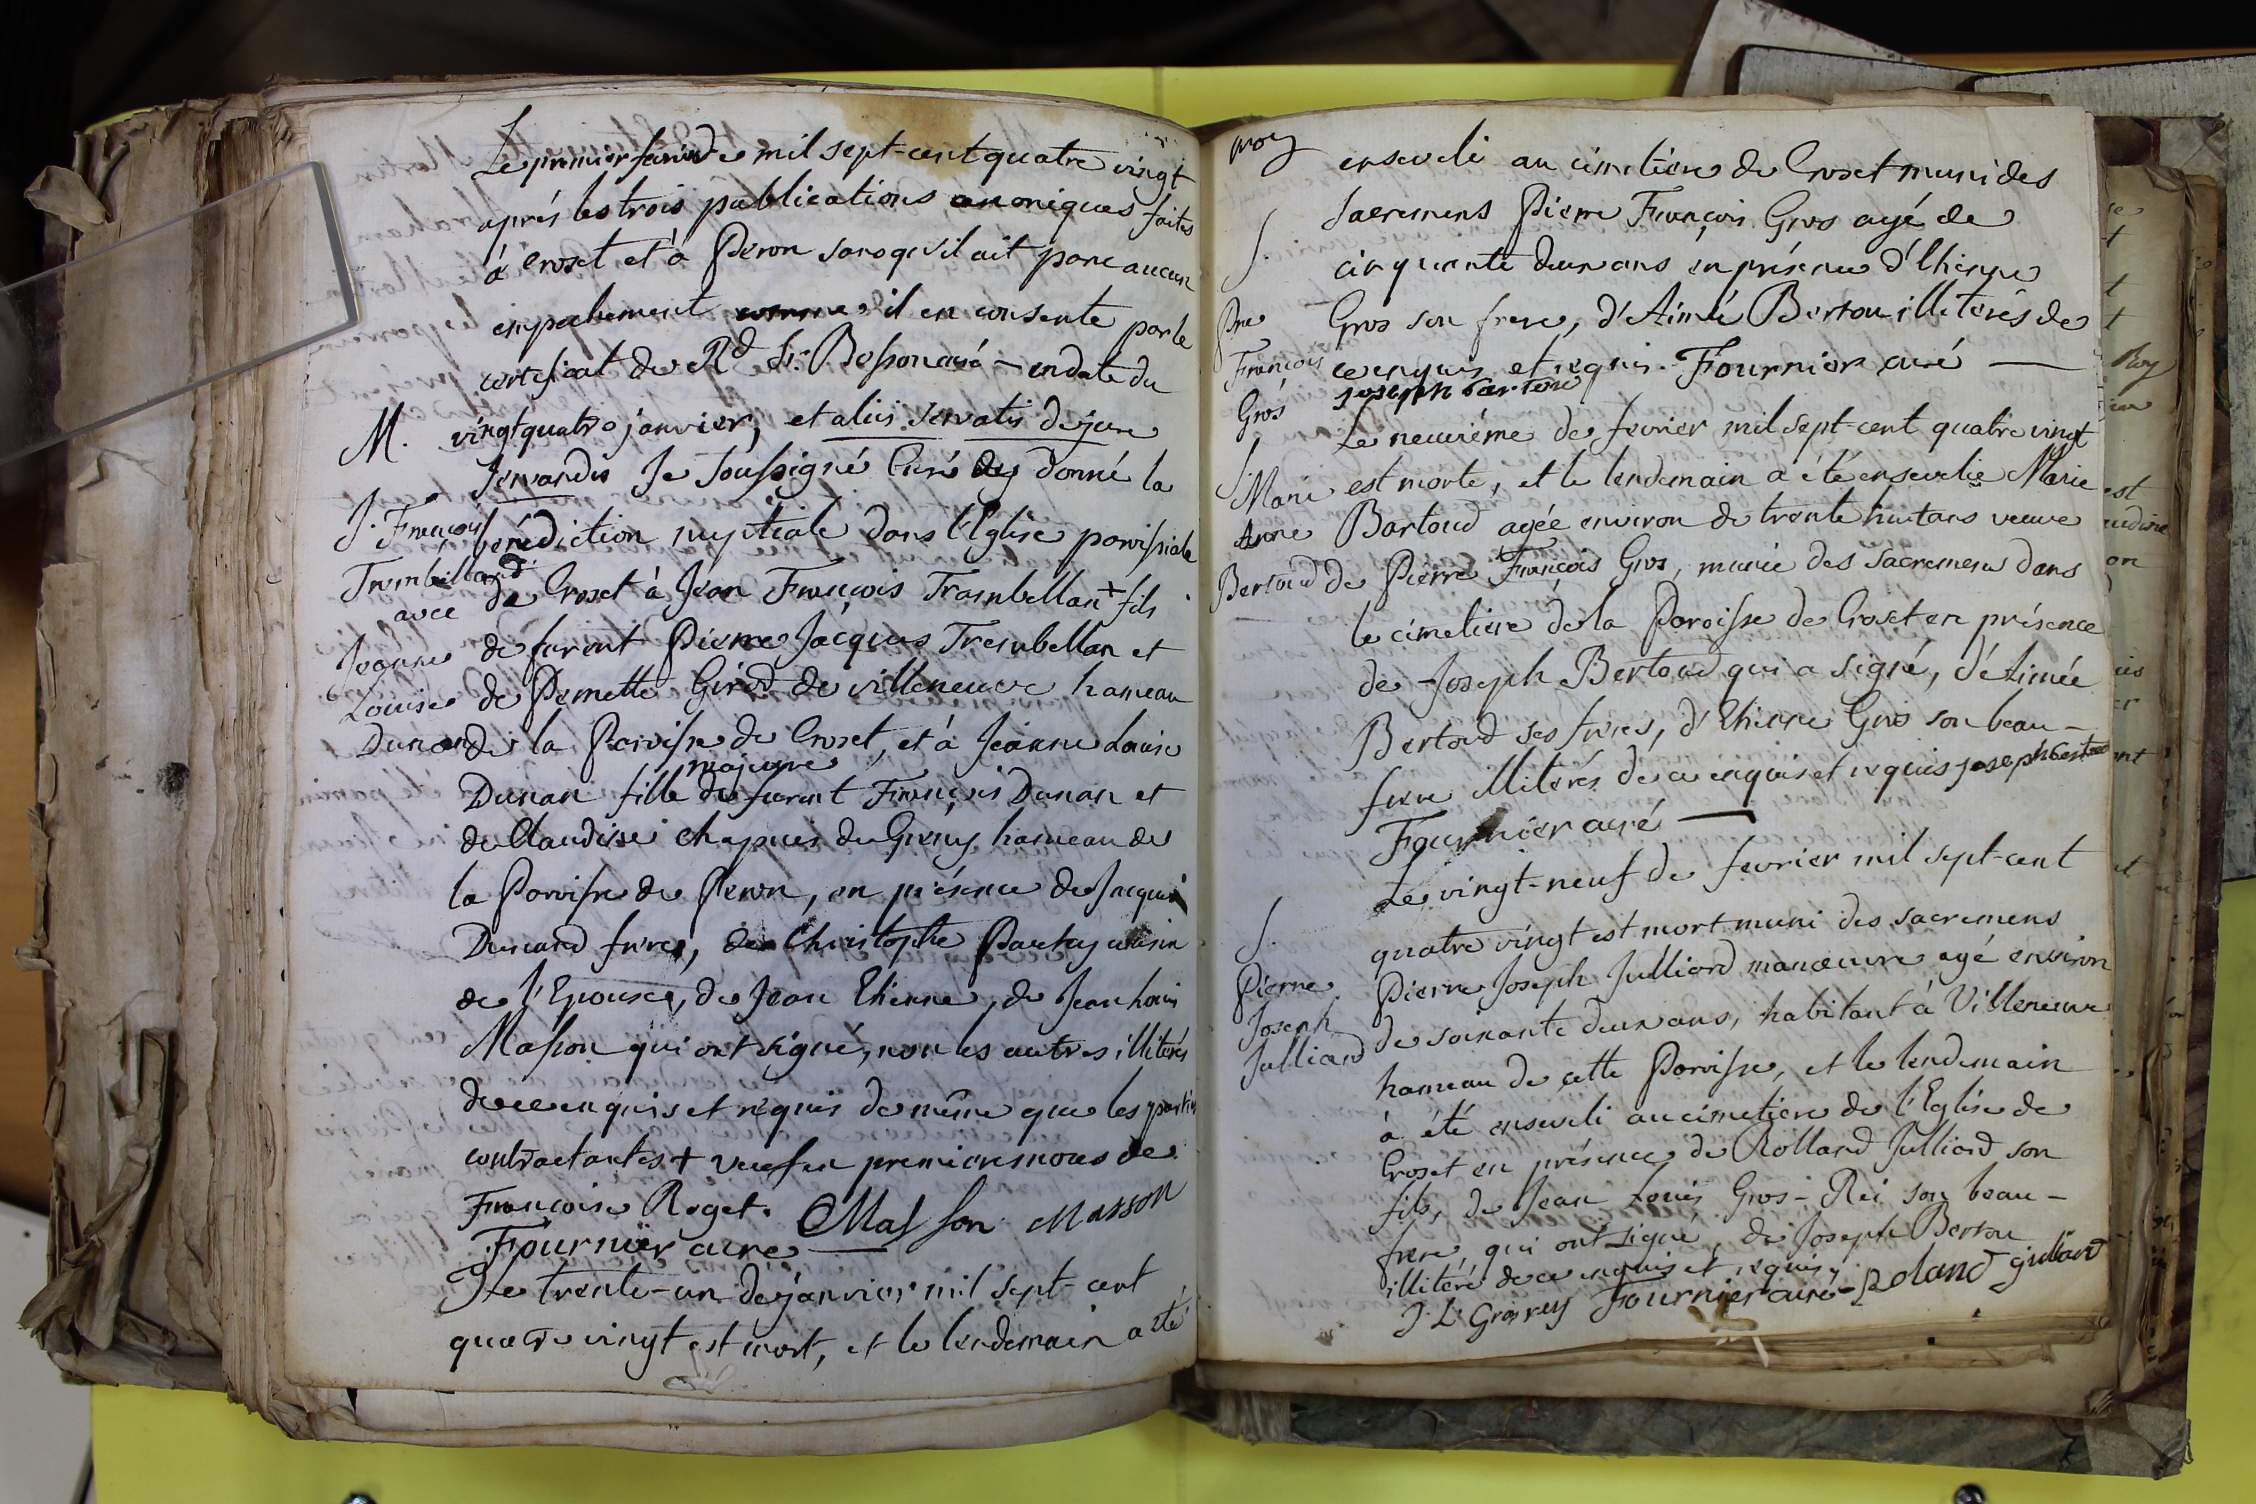 Le premier fevrier mil sept-cent quatre vingt
aprés les trois publications canoniques faites
à Croset et à Peron sans qu'il ait paru aucun
empechement comme il en consente par le
certificat de Rd Sr. Besson curé - en date du
vingt quatre janvier, et aliis servatis de jure
servandis Je soussigné Curé ay donné la
bénédiction nuptiale dans l'Eglise paroissiale
de Croset à Jean François Trambellan + fils
de furent Pierre Jacques Trembellan et
de Pernette Girod de villeneuve hameau
de la Paroisse de Croset, et à Jeanne Louise
majeure
Dunan fille de furent François Dunan et
de Claudine Chapuis du Greny hameau de
la Paroisse de Peron, en présence de Jacques
Dunand frere, de Christophe cousin
de l'Epouse, de Jean Etienne, de Jean Louis
Masson qui ont signé, non les autres illiterés
de ce enquis et requis de même que les parties
contractantes + veuf en premieres noces de
Françoise Roget. Masson Masson
Fournier curé
Le trente-un de janvier mil sept-cent
quatre vingt est mort, et le lendemain a été
M.
J. François
Trembelland
avec
Jeanne
Louise
Dunand
enseveli au cimetiere de Croset muni des
sacremens Pierre François Gros agé de
cinquante deux ans en présence d'Etienne
Gros son frere, d'Aimé Bertou illiterés de
ce enquis et requis. Fournier curé
joseph bertou
Le neuviéme de fevrier mil sept-cent quatre vingt
est morte, et le lendemain a été ensevelie Marie
Bartoud agée environ de trente huit ans veuve
de Pierre François Gros, munie des sacremens dans
le cimetiere de la Paroisse de Croset en présence
de Joseph Bertoud qui a signé, d'Aimée
Bertoud ses freres, d'Etienne Gros son beau-
frere illiterés de ce enquis et requis joseph bertou
Fournier curé
Le vingt-neuf de fevrier mil sept-cent
quatre vingt est mort muni des sacremens
Pierre Joseph Julliard manœuvre agé environ
de soixante deux ans, habitant à Villeneuve
hameau de cette Paroisse, et le lendemain
à été enseveli au cimetiere de l'Eglise de
Croset en présence de Rolland Julliard son
fils, de Jean Louis Gros-Rei son beau-
frere qui ont signé, de Joseph Bertou
illitéré de ce enquis et requis.
J. L. Grosrey Fournier curé - Roland julliard
S.
Pre
François
Gros
S.
Marie
Anne
Bertoud
S.
Pierre
Joseph
Julliard